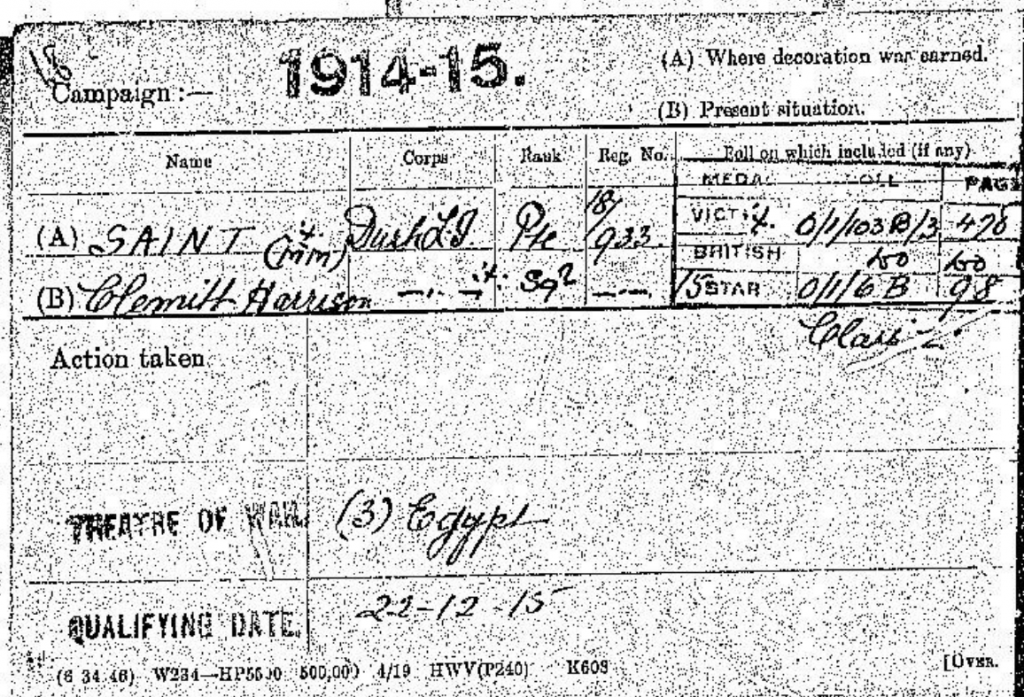 18
1914-15.
(A) Where decoration was earned.
Campaign :—
(B) Present situation.
Name Corps Rank Reg. No. Roll on which included (if any)
MEDAL ROLL PAGE
(A) SAINT (MM) Durh L.I. Pte 18/933 VICTY. 0/1/103 B/3 478
BRITISH do do
(B) Clemitt Harrison —"— Sgt —"— 15 STAR 0/1/6 B 98
Class Z
Action taken
THEATRE OF WAR. (3) Egypt
QUALIFYING DATE. 22-12-15
(6 34 46) W234—HP5500 500,000 4/19 HWV(P240) K608
[OVER.